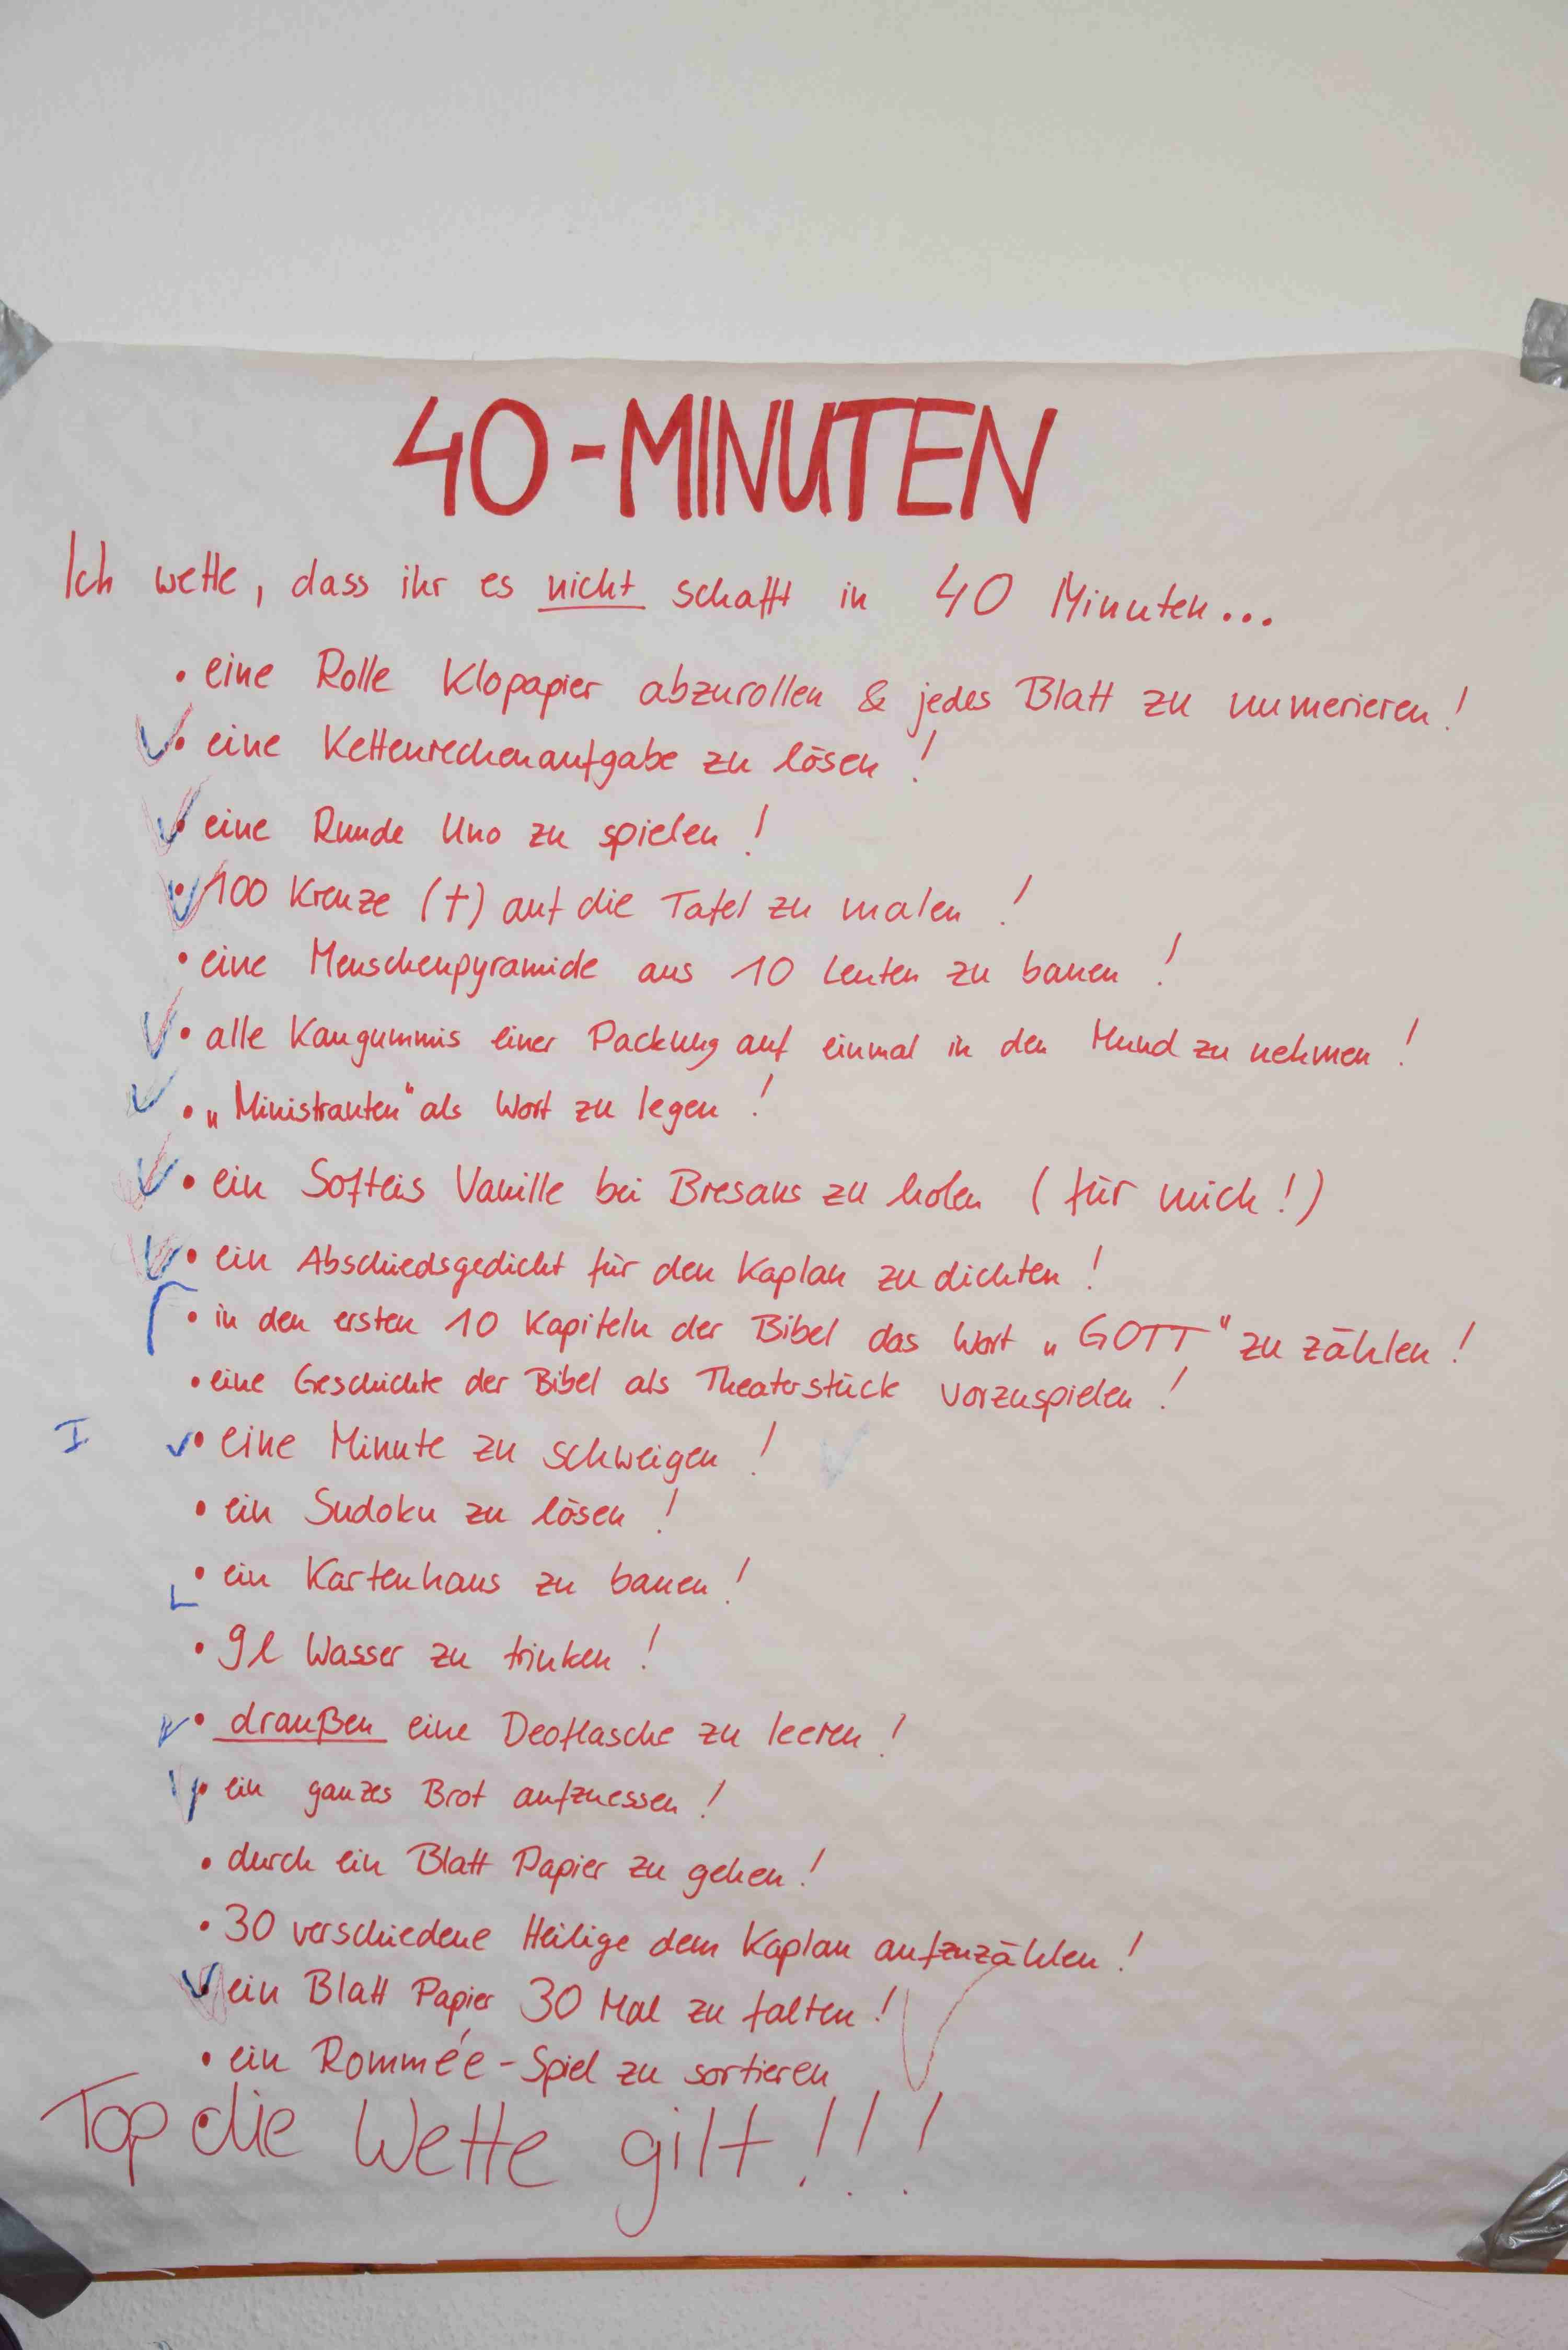 40-MINUTEN
Ich wette, dass ihr es nicht schafft in 40 Minuten...
• eine Rolle Klopapier abzurollen & jedes Blatt zu numerieren!
• eine Kettenrechenaufgabe zu lösen!
• eine Runde Uno zu spielen!
• 100 Kreuze (†) auf die Tafel zu malen!
• eine Menschenpyramide aus 10 Leuten zu bauen!
• alle Kaugummis einer Packung auf einmal in den Mund zu nehmen!
• „Ministranten" als Wort zu legen!
• ein Softeis Vanille bei Bresans zu holen (für mich!)
• ein Abschiedsgedicht für den Kaplan zu dichten!
• in den ersten 10 Kapiteln der Bibel das Wort „GOTT" zu zählen!
• eine Geschichte der Bibel als Theaterstück vorzuspielen!
I • eine Minute zu schweigen!
• ein Sudoku zu lösen!
• ein Kartenhaus zu bauen!
• 9l Wasser zu trinken!
• draußen eine Deoflasche zu leeren!
• ein ganzes Brot aufzuessen!
• durch ein Blatt Papier zu gehen!
• 30 verschiedene Heilige dem Kaplan aufzuzählen!
• ein Blatt Papier 30 Mal zu falten!
• ein Rommée-Spiel zu sortieren
Top die Wette gilt!!!